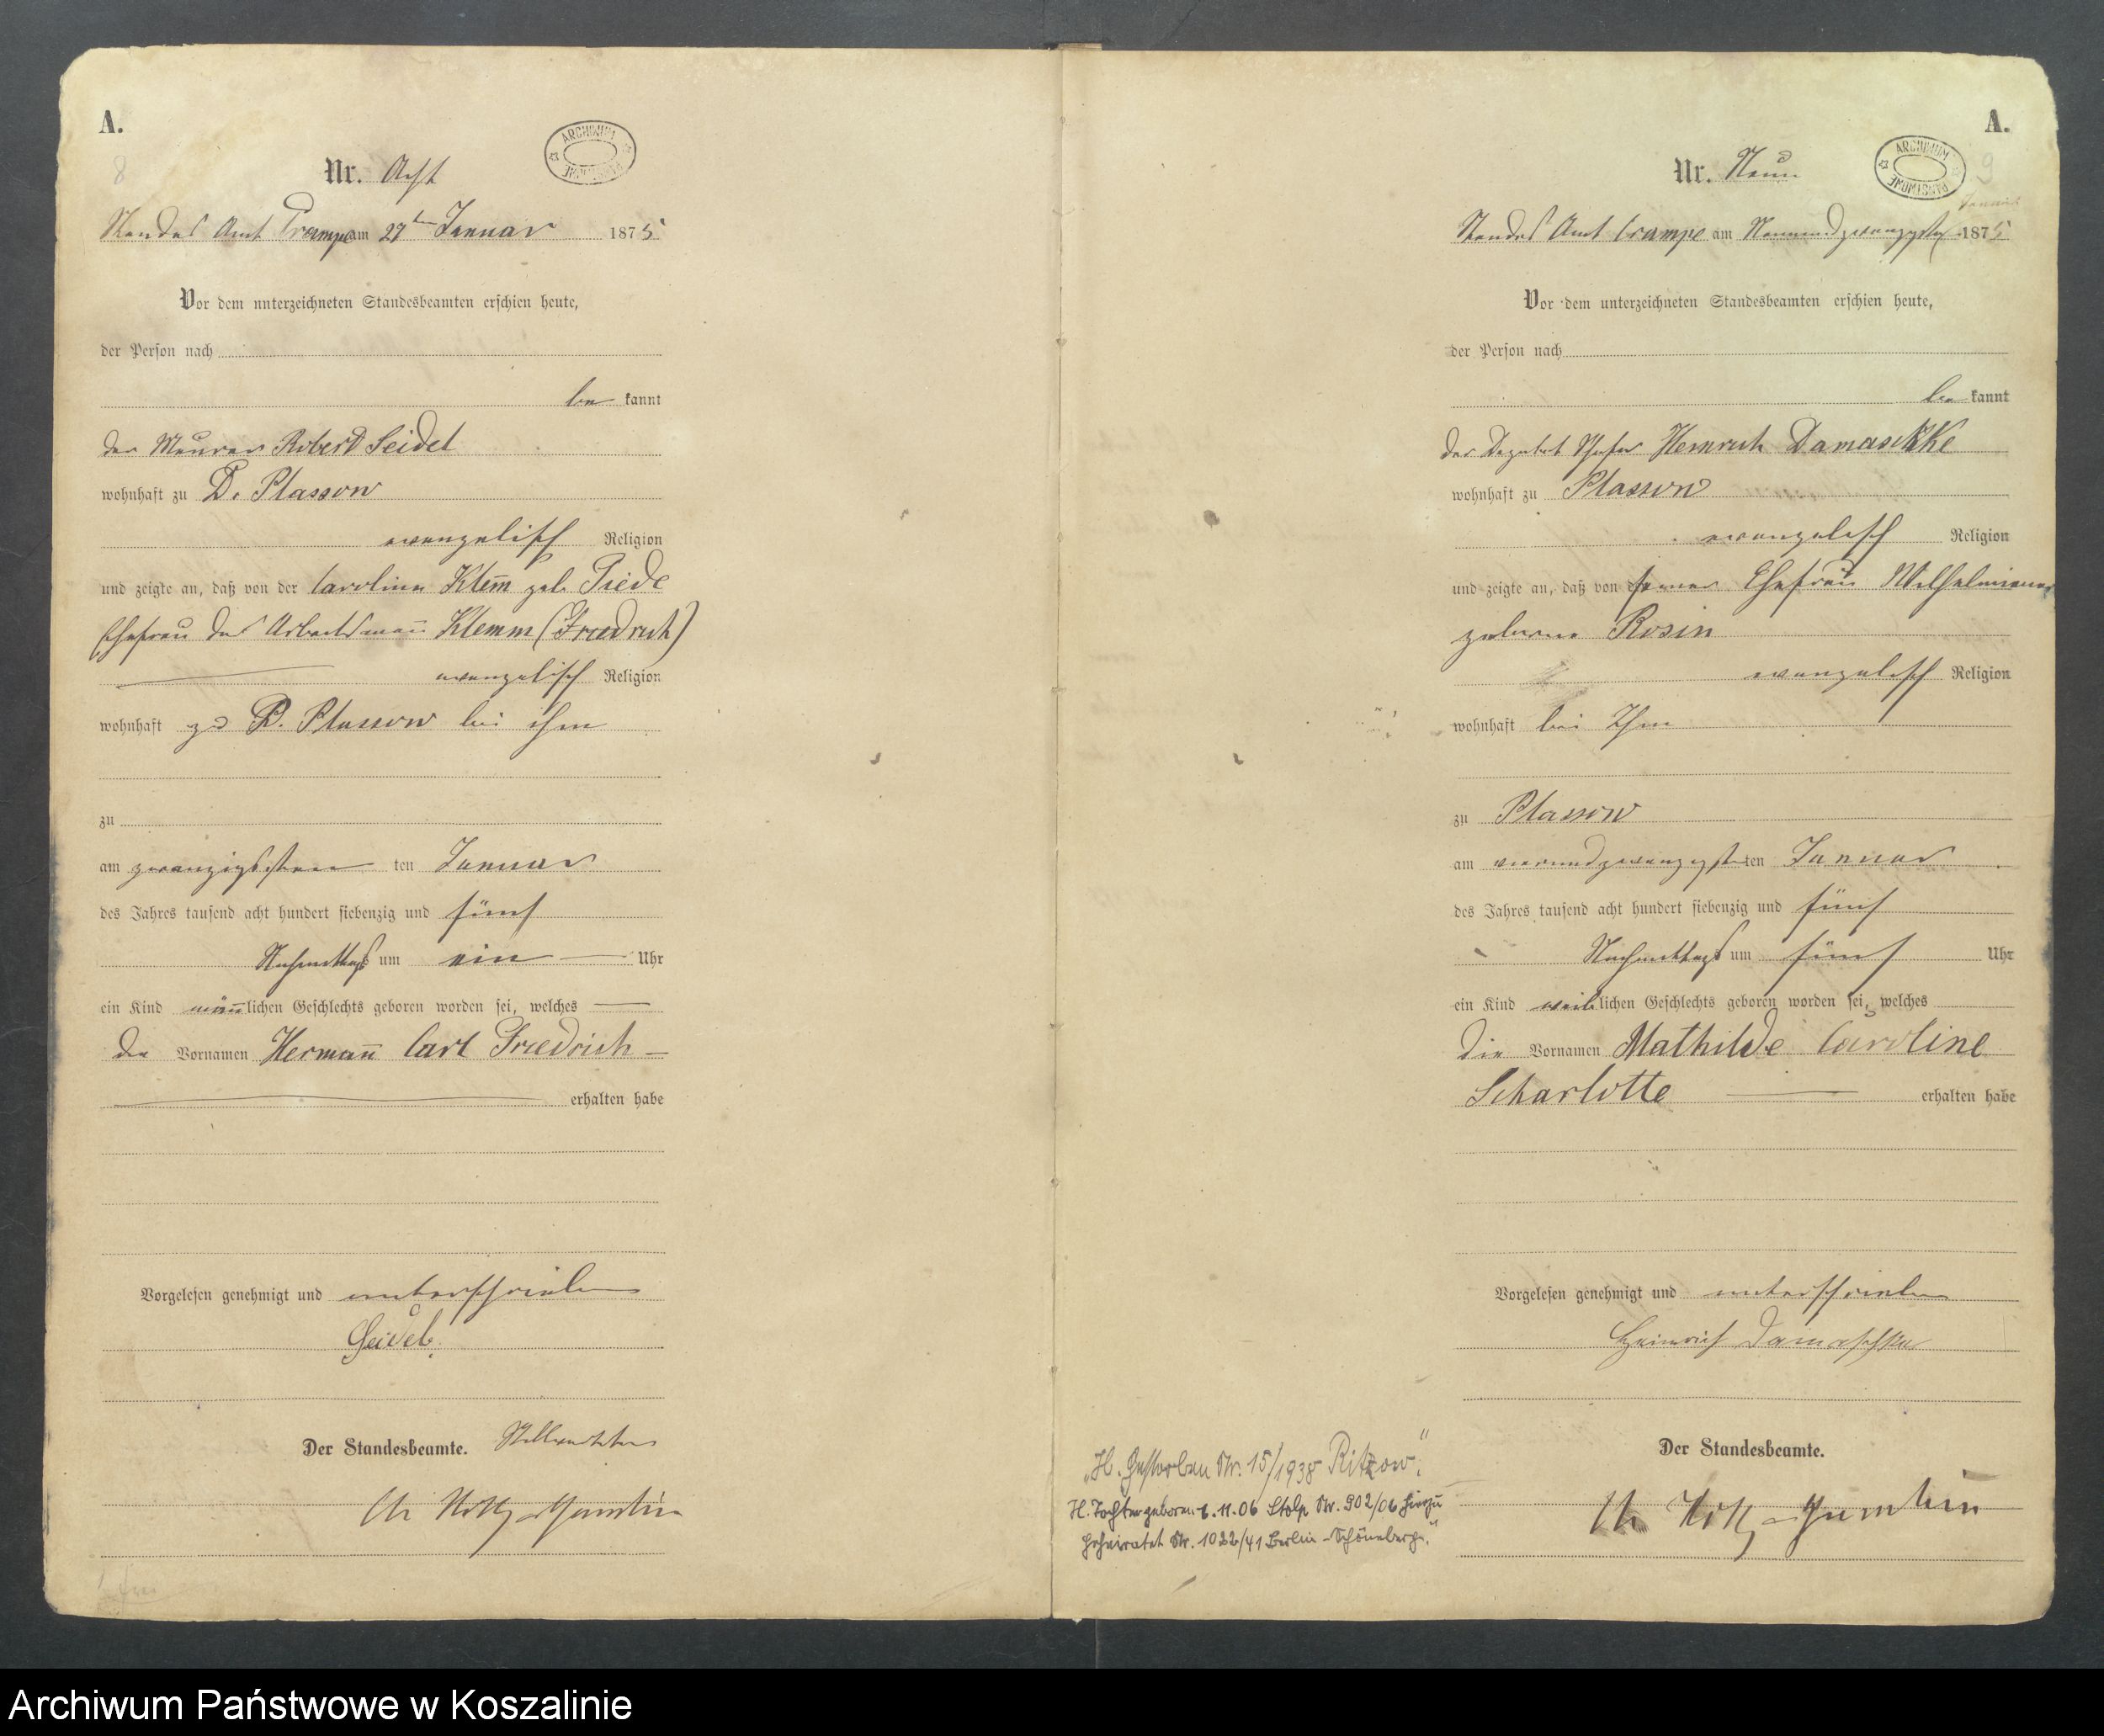 A.
8
Nr. Acht
ARCHIWUM PAŃSTWOWE
Standes Amt Crampe am 27ten Januar 1875
Vor dem unterzeichneten Standesbeamten erschien heute,
der Person nach
be kannt
der Maurer Robert Seidel
wohnhaft zu D. Plassow
evangelisch Religion
und zeigte an, daß von der Caroline Klem̄ geb. Piede
Ehefrau des Arbeitsman̄ Klemm (Friedrich)
evangelisch Religion
wohnhaft zu D. Plassow bei ihm
zu
am zwanzigsten ten Januar
des Jahres tausend acht hundert siebenzig und fünf
Nachmittags um ein Uhr
ein Kind män̄lichen Geschlechts geboren worden sei, welches
die Vornamen Herman̄ Carl Friedrich
erhalten habe
Vorgelesen genehmigt und unterschrieben
Seidel
Der Standesbeamte.
A.
9
Nr. Neun
ARCHIWUM PAŃSTWOWE
Januar
Standes Amt Crampe am Neunundzwanzigsten 1875
Vor dem unterzeichneten Standesbeamten erschien heute,
der Person nach
be kannt
der Deputat Schäfer Heinrich Damaschke
wohnhaft zu Plassow
evangelisch Religion
und zeigte an, daß von seiner Ehefrau Wilhelmine
geborne Rosin
evangelisch Religion
wohnhaft bei Ihm
zu Plassow
am vierundzwanzigsten ten Januar
des Jahres tausend acht hundert siebenzig und fünf
Nachmittags um fünf Uhr
ein Kind weiblichen Geschlechts geboren worden sei, welches
die Vornamen Mathilde Caroline
Scharlotte erhalten habe
Vorgelesen genehmigt und unterschrieben
Heinrich Damaschke
Der Standesbeamte.
„H. Gestorben Nr. 15/1938 Ritzow".
H. Tochter geboren 6.11.06 Stolp Nr. 902/06 hierzu
Geheiratet Nr. 1022/41 Berlin-Schöneberg."
Archiwum Państwowe w Koszalinie